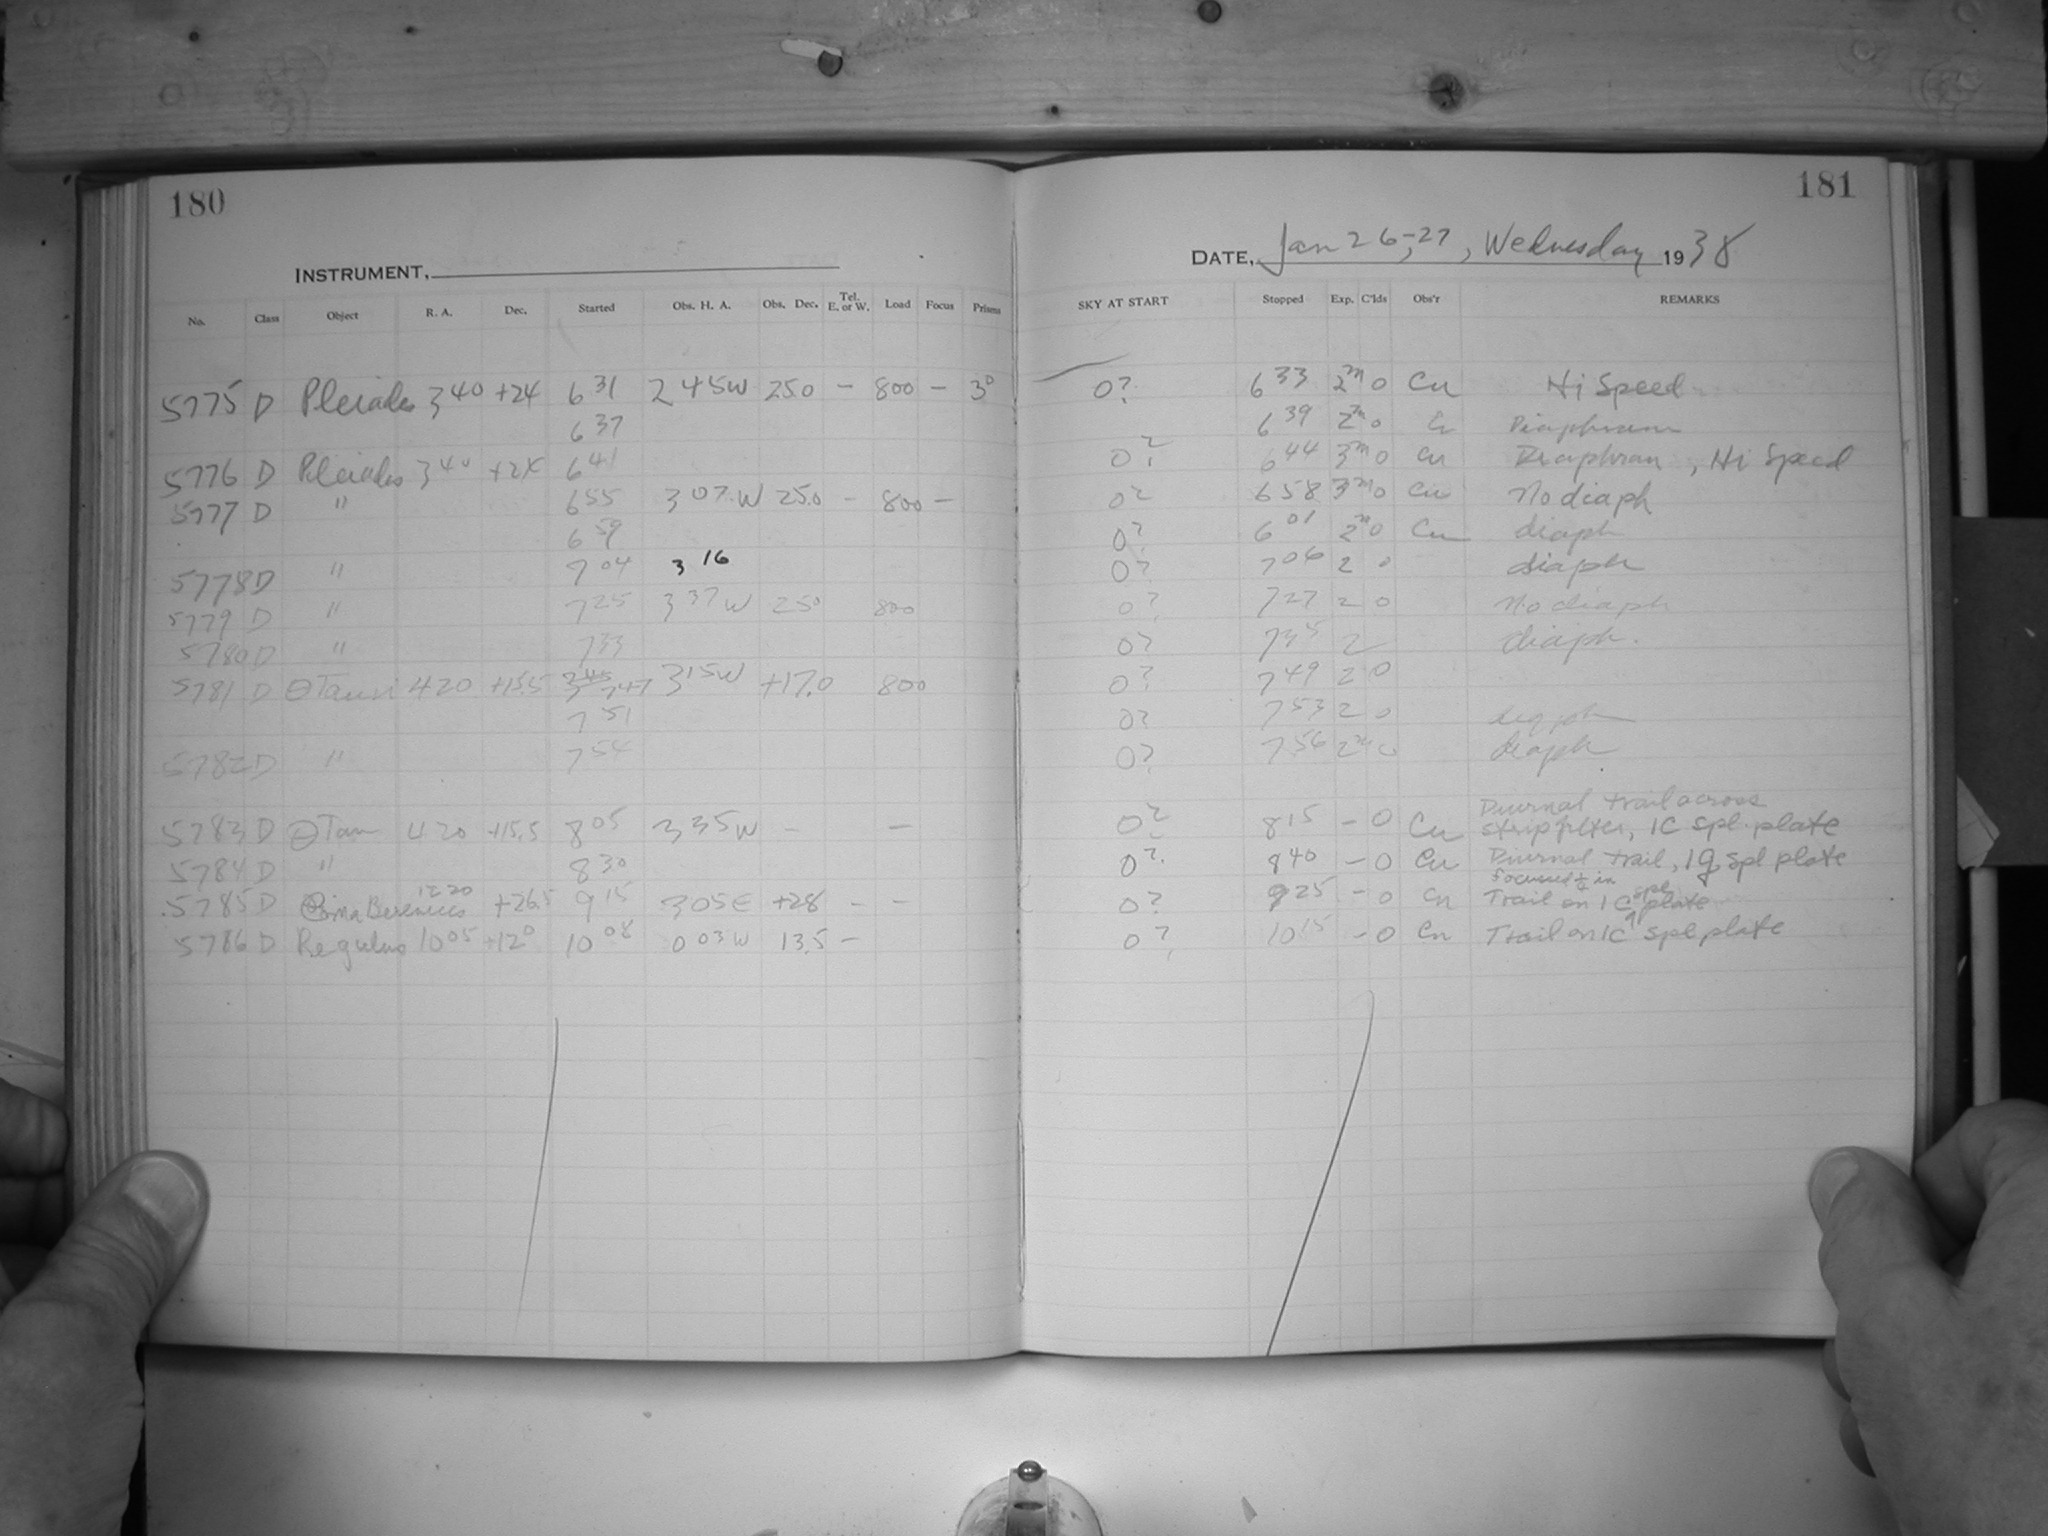 180
INSTRUMENT,
No. Class Object R. A. Dec. Started Obs. H. A. Obs. Dec. Tel. E. or W. Load Focus Prisms
5775 D Pleiades 3 40 +24 6 31 2 45W 25.0 - 800 - 3°
6 37
5776 D Pleiades 3 40 +24 6 41
5777 D " 6 55 3 07 W 25.0 - 800 -
6 59
5778 D " 7 04 3 16
5779 D " 7 25 3 37 W 25.0 800
5780 D " 7 33
5781 D θ Tauri 4 20 +15.5 7 47 3 15W +17.0 800
7 51
5782 D " 7 54
5783 D θ Tau 4 20 +15.5 8 05 3 35W - -
5784 D " 8 30
5785 D Coma Berenices 12 20 +26.5 9 15 3 05 E +28 - -
5786 D Regulus 10 05 +12° 10 08 0 03 W 13.5 -
181
DATE, Jan 26-27, Wednesday 1938
SKY AT START Stopped Exp. C'lds Obs'r REMARKS
0? 6 33 2m 0 Cu Hi Speed
6 39 2m 0 Cu
0? 6 44 3m 0 Cu Diaphram, Hi Speed
0? 6 58 3m 0 Cu No diaph
0? 6 01 2m 0 Cu diaph
0? 7 06 2 0 diaph
0? 7 27 2 0 No diaph
0? 7 35 2 diaph.
0? 7 49 2 0
0? 7 53 2 0 diaph
0? 7 56 2m 0 diaph
0? 8 15 - 0 Cu Diurnal trail across
strip filter, 1C spl. plate
0? 8 40 - 0 Cu Diurnal trail, 1g spl plate
focussed ½ in
0? 9 25 - 0 Cu Trail on 1C spl plate
0? 10 15 - 0 Cu Trail on 1C spl plate